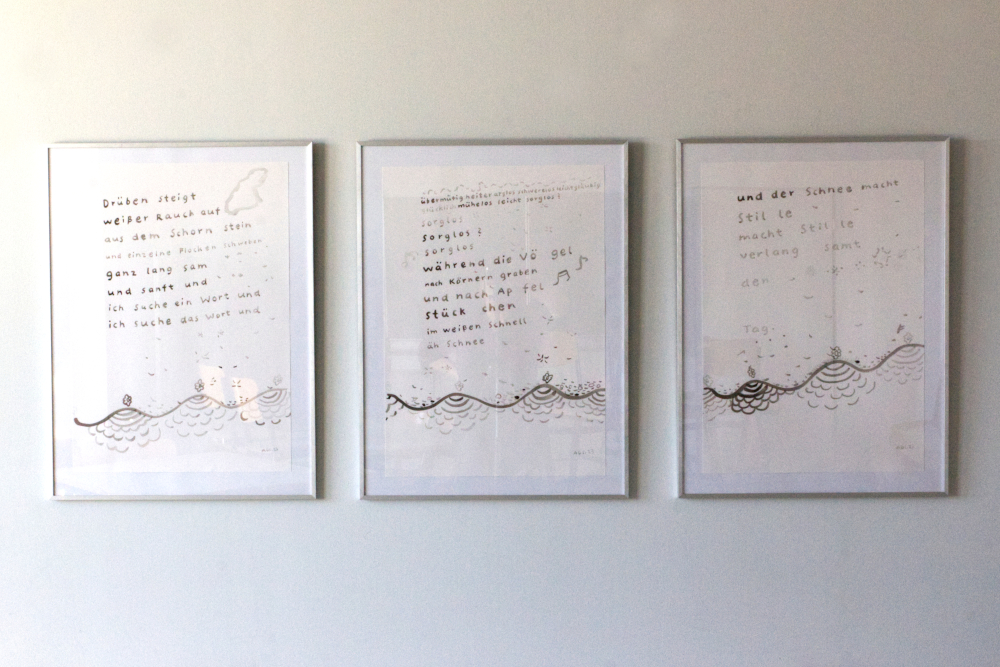 Drüben steigt
weißer Rauch auf
aus dem Schorn stein
und einzelne Flocken schweben
ganz lang sam
und sanft und
ich suche ein Wort und
ich suche das Wort und
übermütig heiter
mühelos leicht sorglos?
sorglos
sorglos?
sorglos
während die Vö gel
nach Körnern graben
und nach Ap fel
stück chen
im weißen Schnell
äh Schnee
und der Schnee macht
Stil le
macht Stil le
verlang samt
den
Tag.